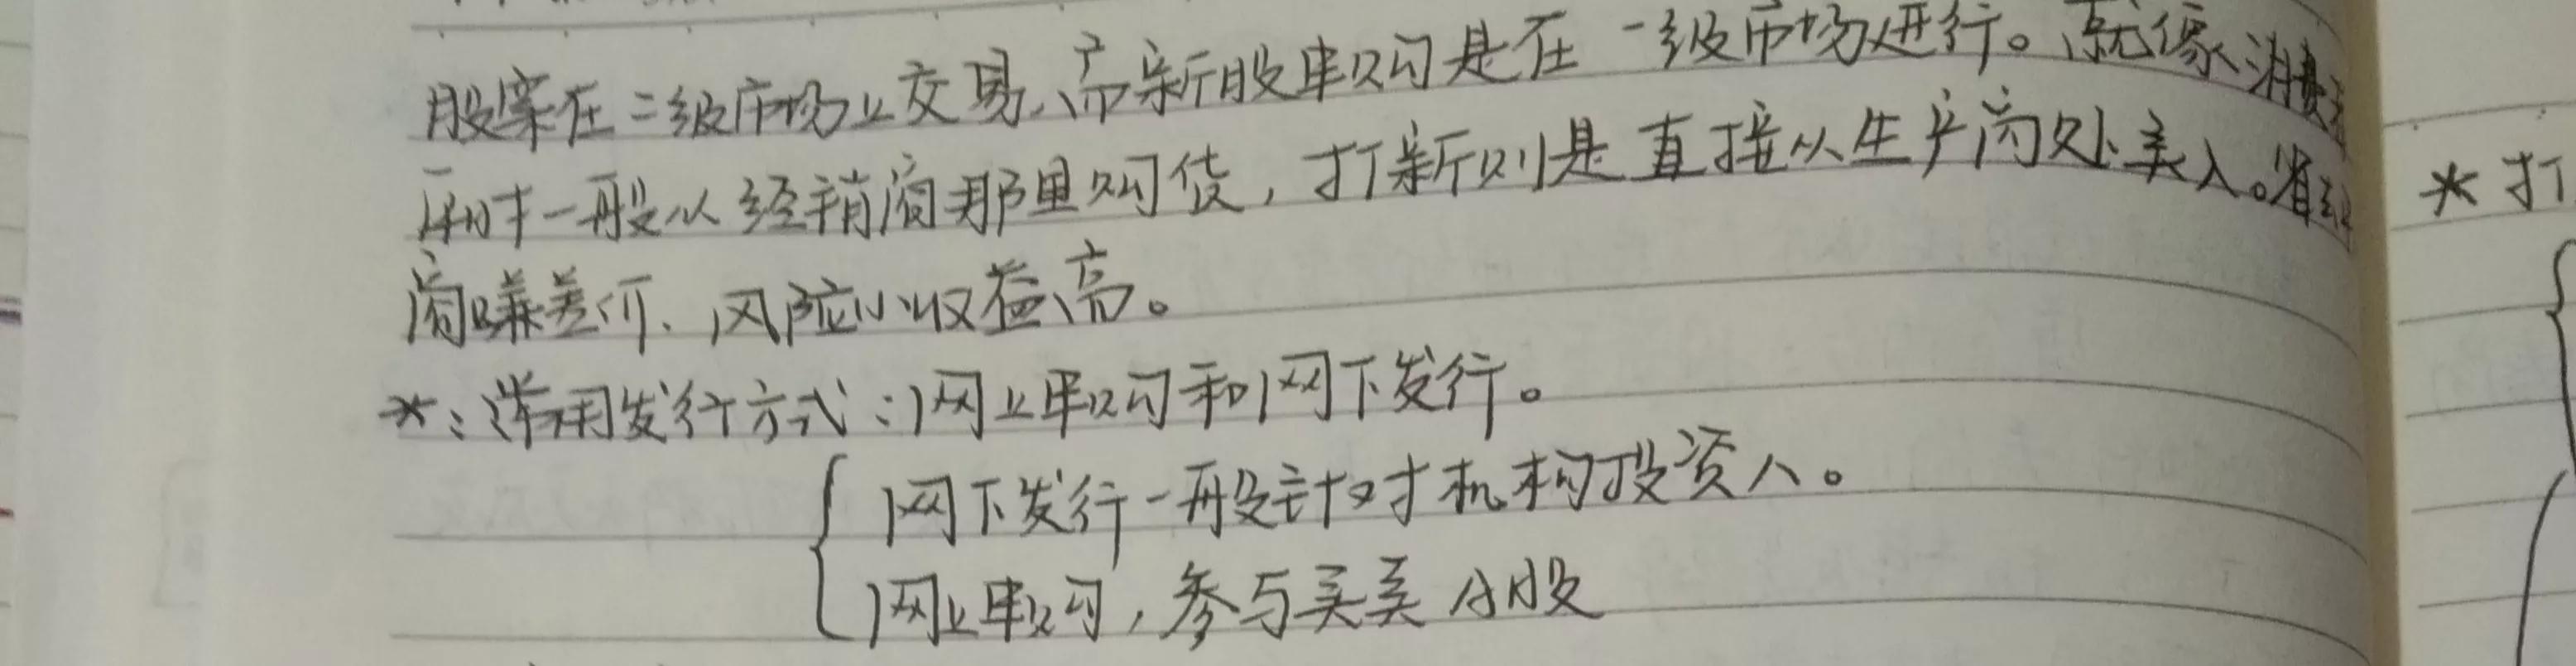 股票在二级市场上交易、而新股申购是在一级市场进行。就像消费者
平时一般从经销商那里购货，打新则是直接从生产商处买入。省经
商赚差价、风险小收益高。
*：常用发行方式：网上申购和网下发行。
网下发行一般针对机构投资人。
网上申购，参与买卖A股
* 打